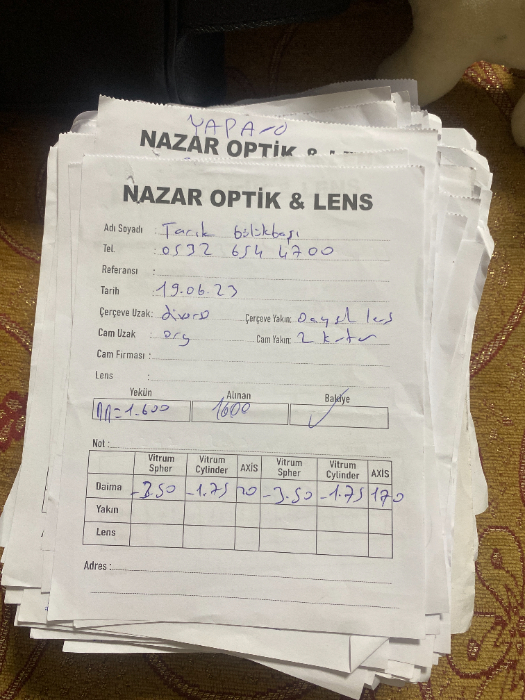 YAPA
NAZAR OPTİK &
NAZAR OPTİK & LENS
Adı Soyadı : Tarık Bölükbaşı
Tel. : 0532 654 4700
Referansı :
Tarih : 19.06.23
Çerçeve Uzak: Çerçeve Yakın: lens
Cam Uzak : org Cam Yakın: 2 kutu
Cam Firması :
Lens :
Yekün Alınan Bakiye
1.600 1600 ✓
Not :
Vitrum Spher Vitrum Cylinder AXİS Vitrum Spher Vitrum Cylinder AXİS
Daima -3.50 -1.75 20 -3.50 -1.75 170
Yakın
Lens
Adres :